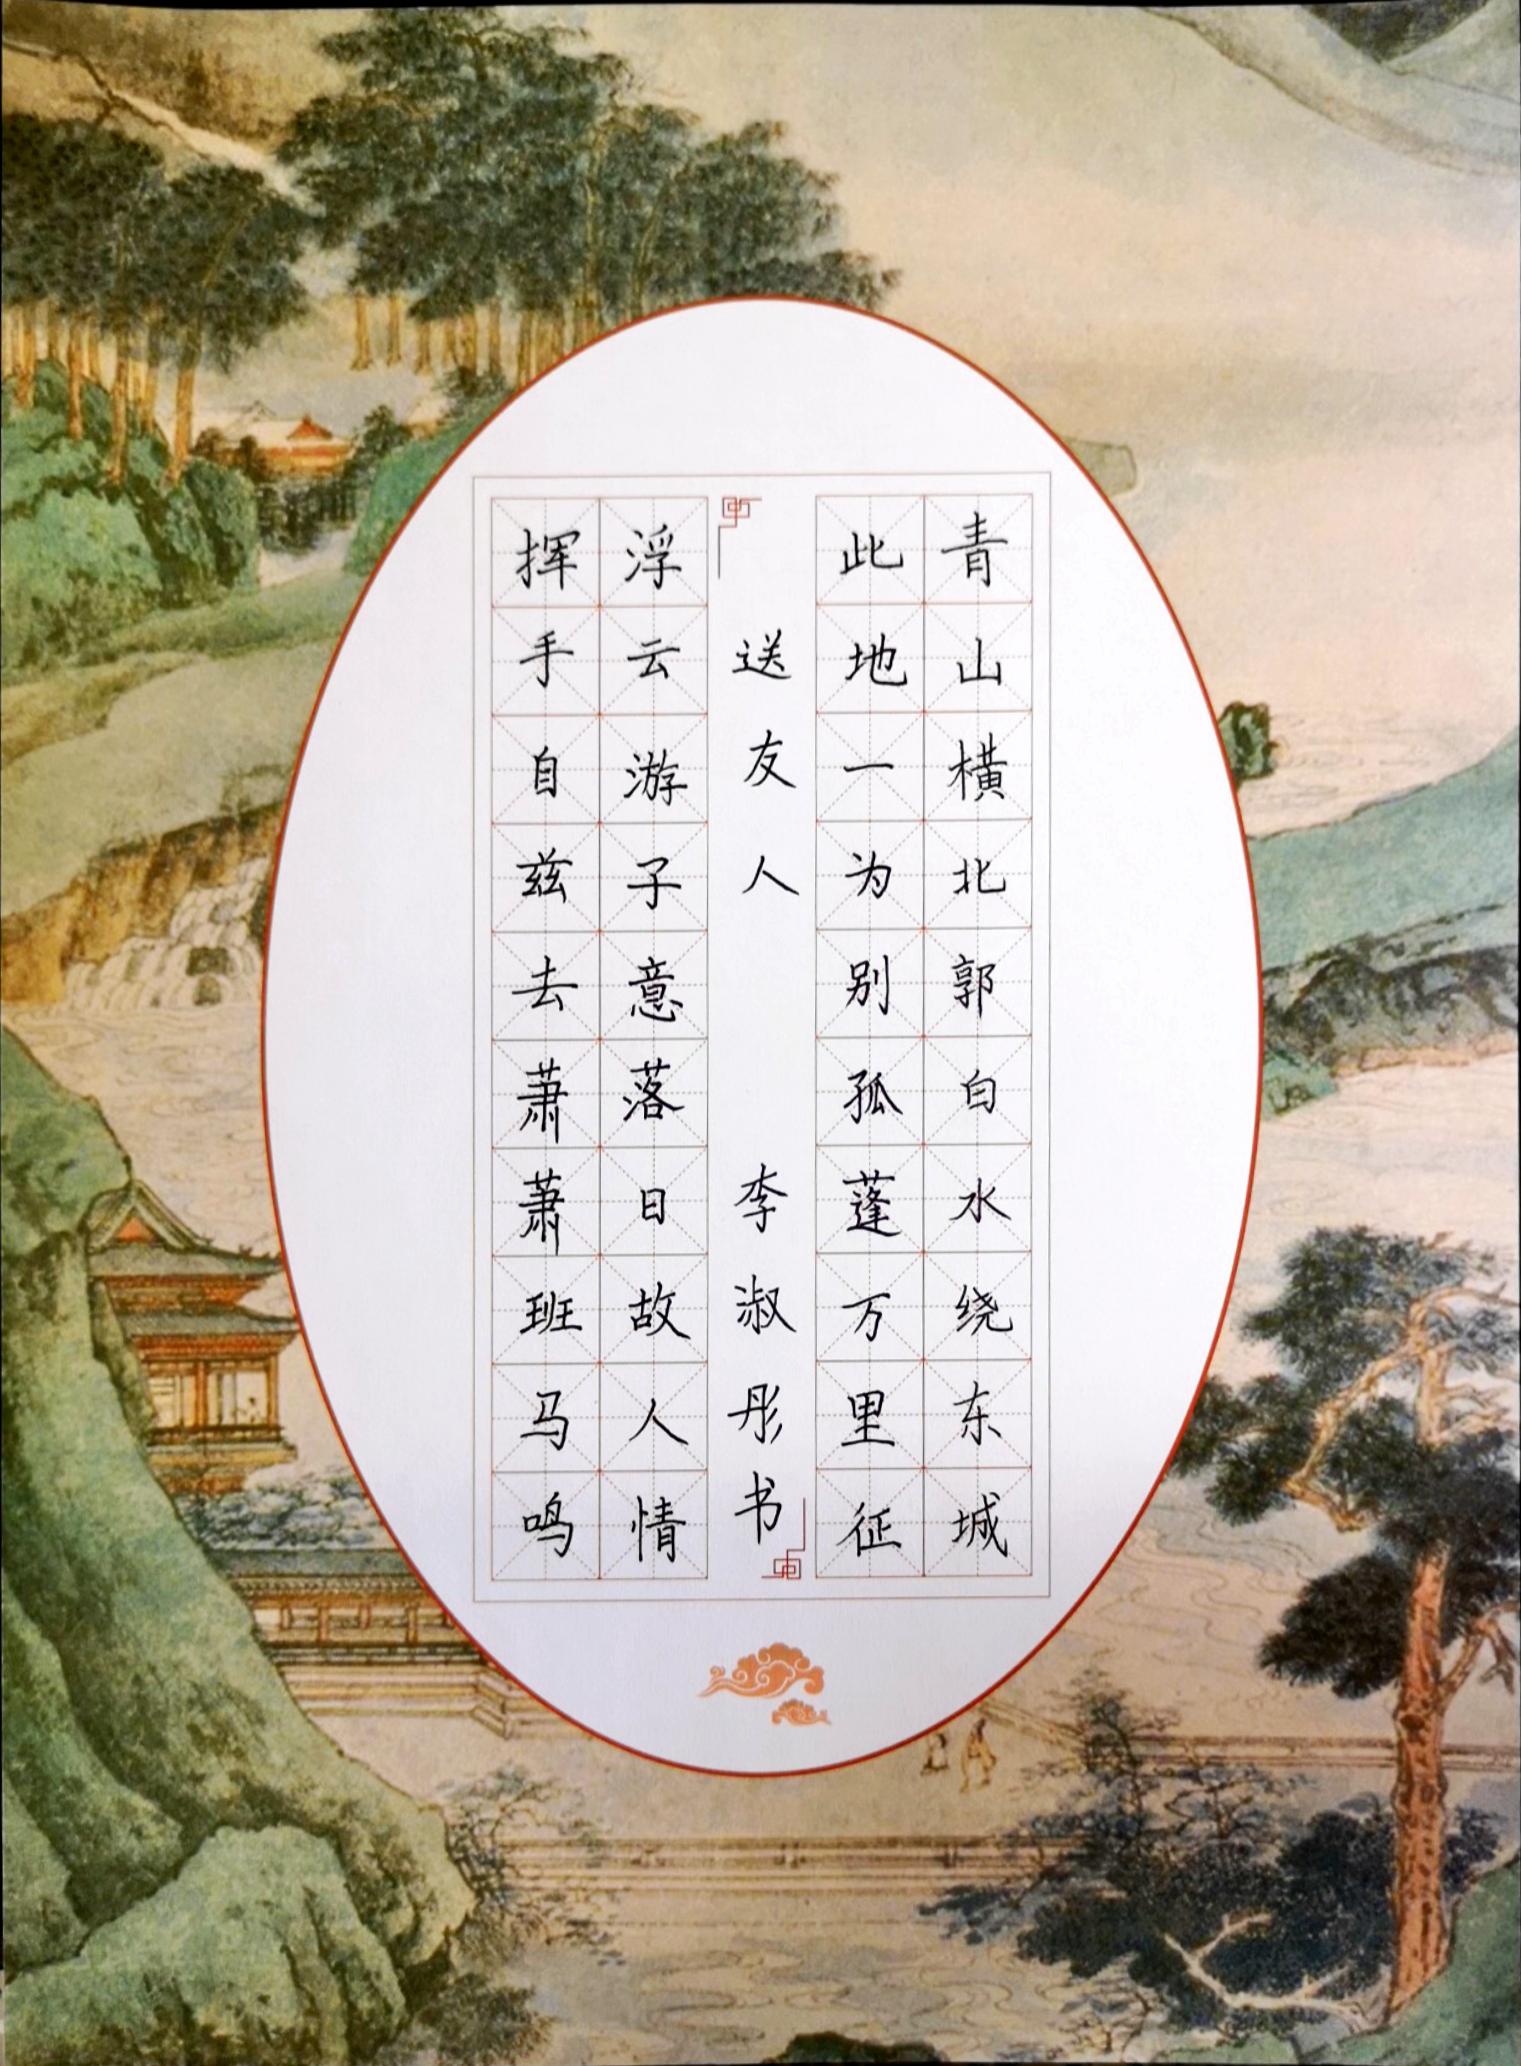 青山横北郭白水绕东城
此地一为别孤蓬万里征
送友人 李淑彤书
浮云游子意落日故人情
挥手自兹去萧萧班马鸣